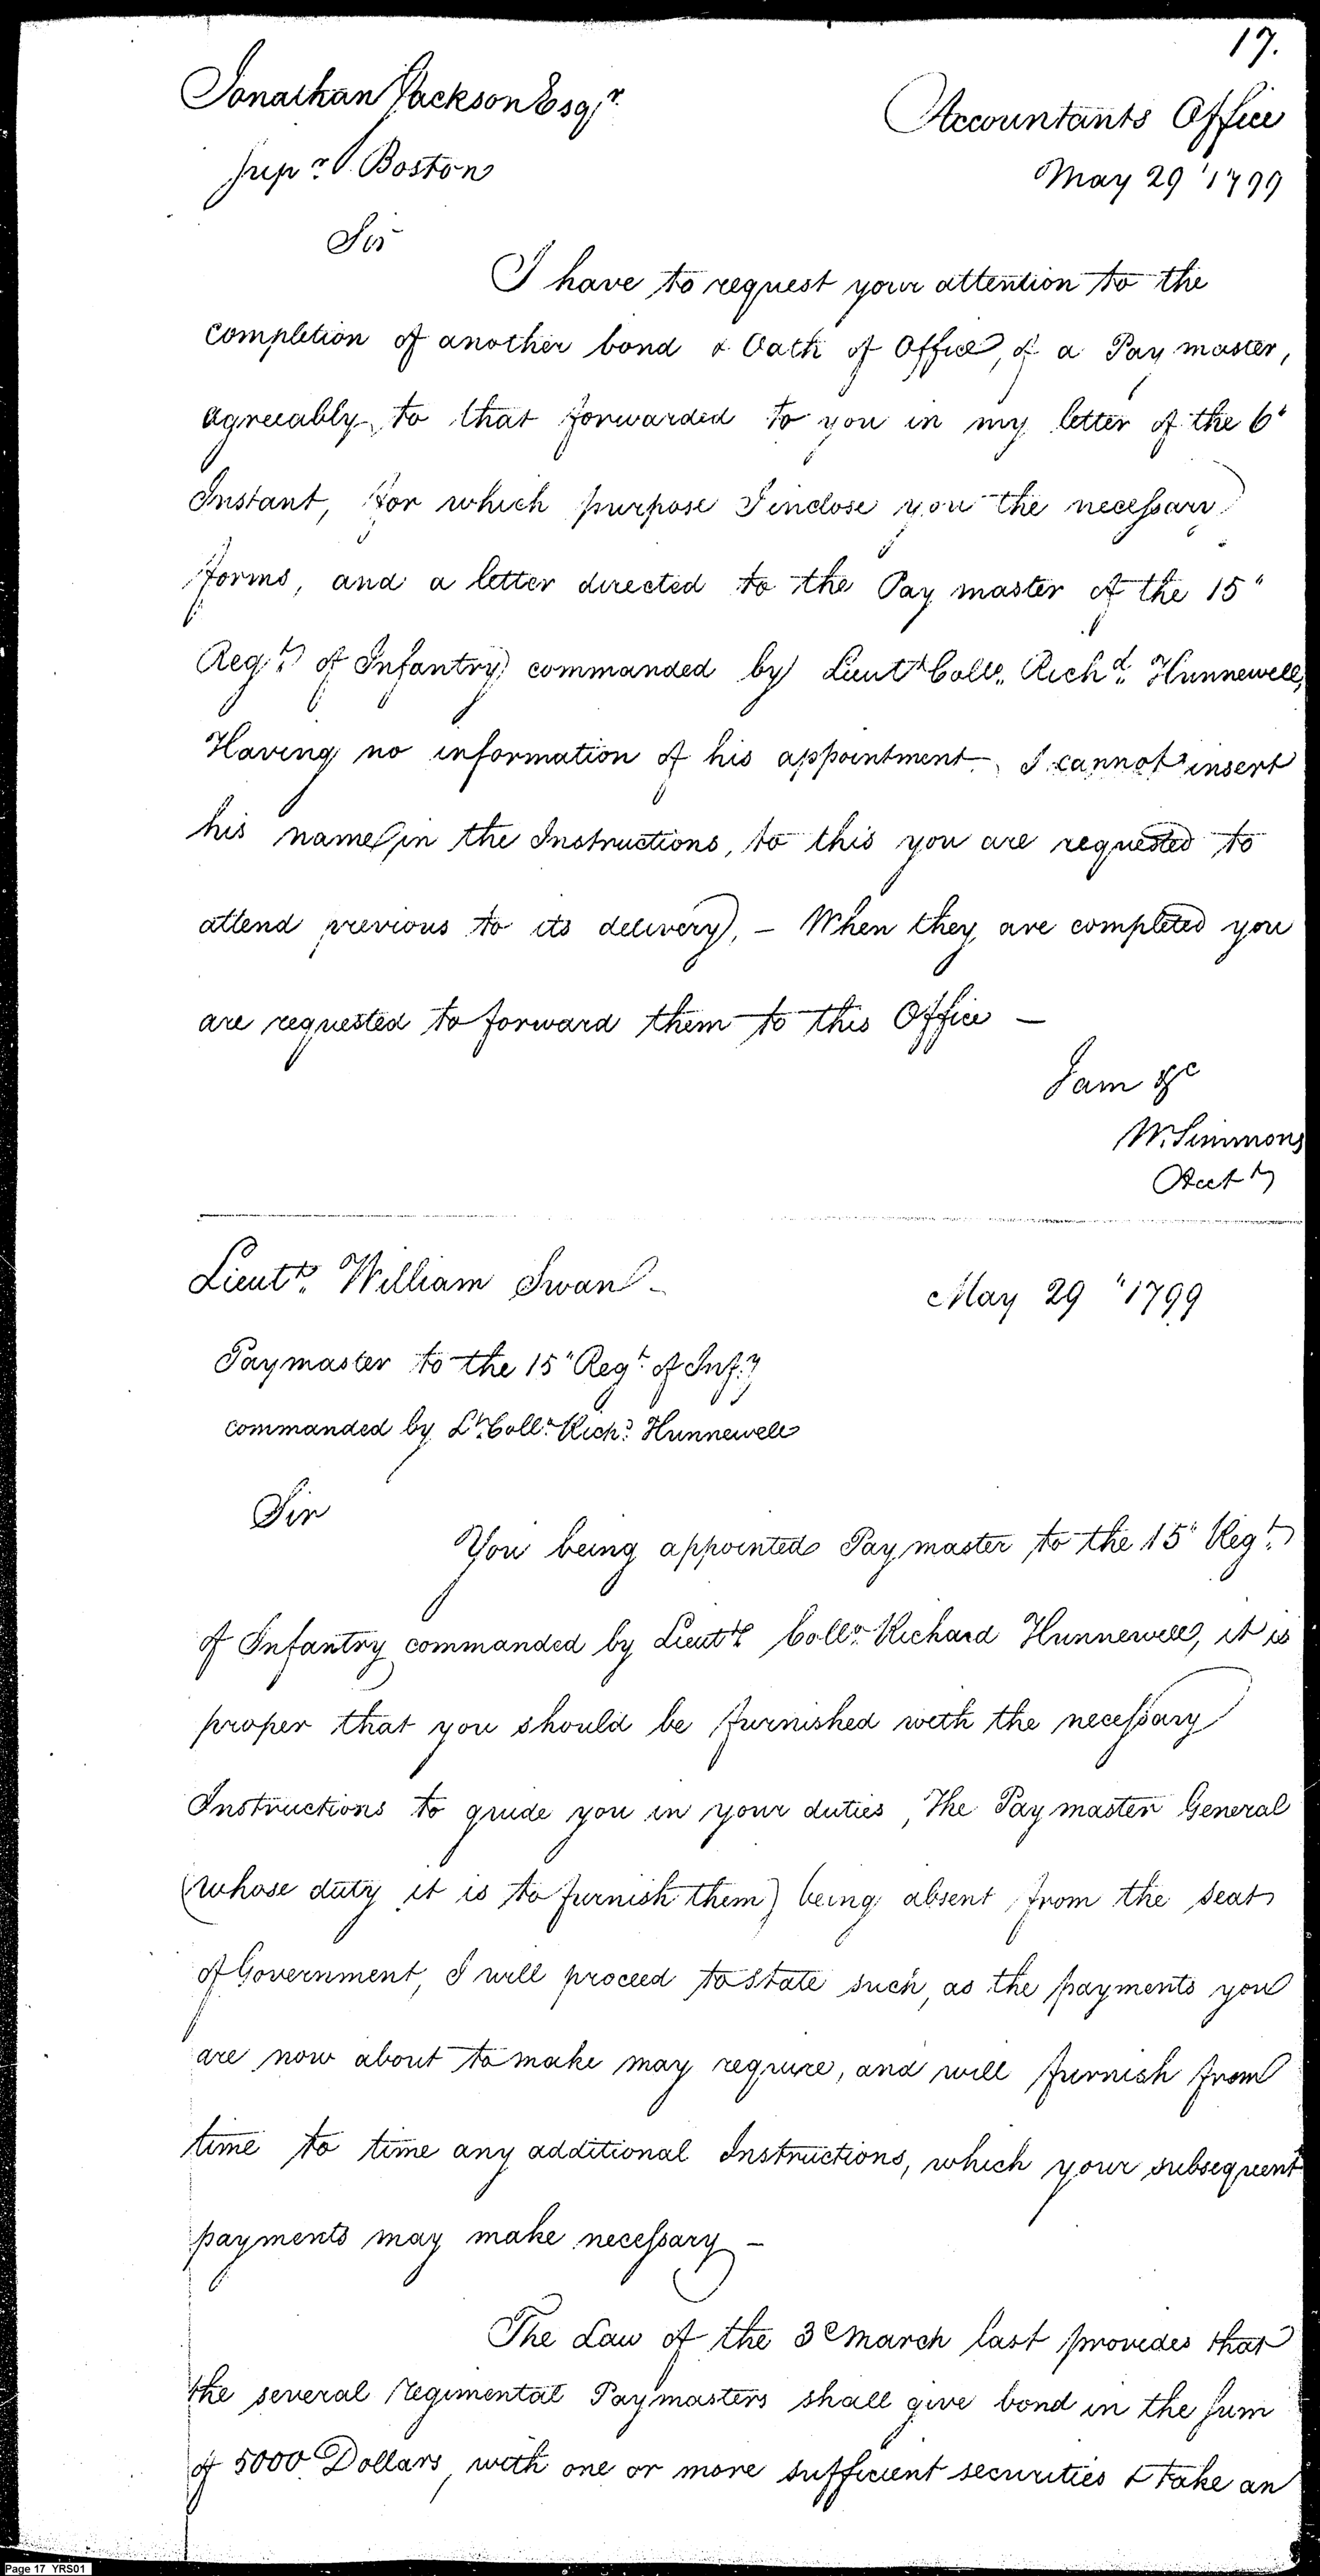 17.
Jonathan Jackson Esqr.
Supr. Boston
Accountants Office
May 29 1799
Sir
I have to request your attention to the
completion of another bond & Oath of Office, of a Paymaster,
agreeably to that forwarded to you in my letter of the 6"
Instant, for which purpose I inclose you the necessary
forms, and a letter directed to the Pay master of the 15"
Regt. of Infantry commanded by Lieut. Coll. Richd. Hunnewell,
Having no information of his appointment I cannot insert
his name in the Instructions, to this you are requested to
attend previous to its delivery, - When they are completed you
are requested to forward them to this Office —
I am &c
W. Simmons
Acct.
Lieutt. William Swan -
May 29 "1799
Paymaster to the 15" Regt. of Infy
commanded by Lt. Coll. Richd. Hunnewell
Sir
You being appointed Paymaster to the 15" Regt.
of Infantry commanded by Lieutt. Coll. Richard Hunnewell, it is
proper that you should be furnished with the necessary
Instructions to guide you in your duties, The Paymaster General
(whose duty it is to furnish them) being absent from the seat
of Government, I will proceed to state such, as the payments you
are now about to make may require, and will furnish from
time to time any additional Instructions, which your subsequent
payments may make necessary —
The Law of the 3d March last provides that
the several regimental Paymasters shall give bond in the sum
of 5000 Dollars, with one or more sufficient securities & take an
Page 17 YRS01